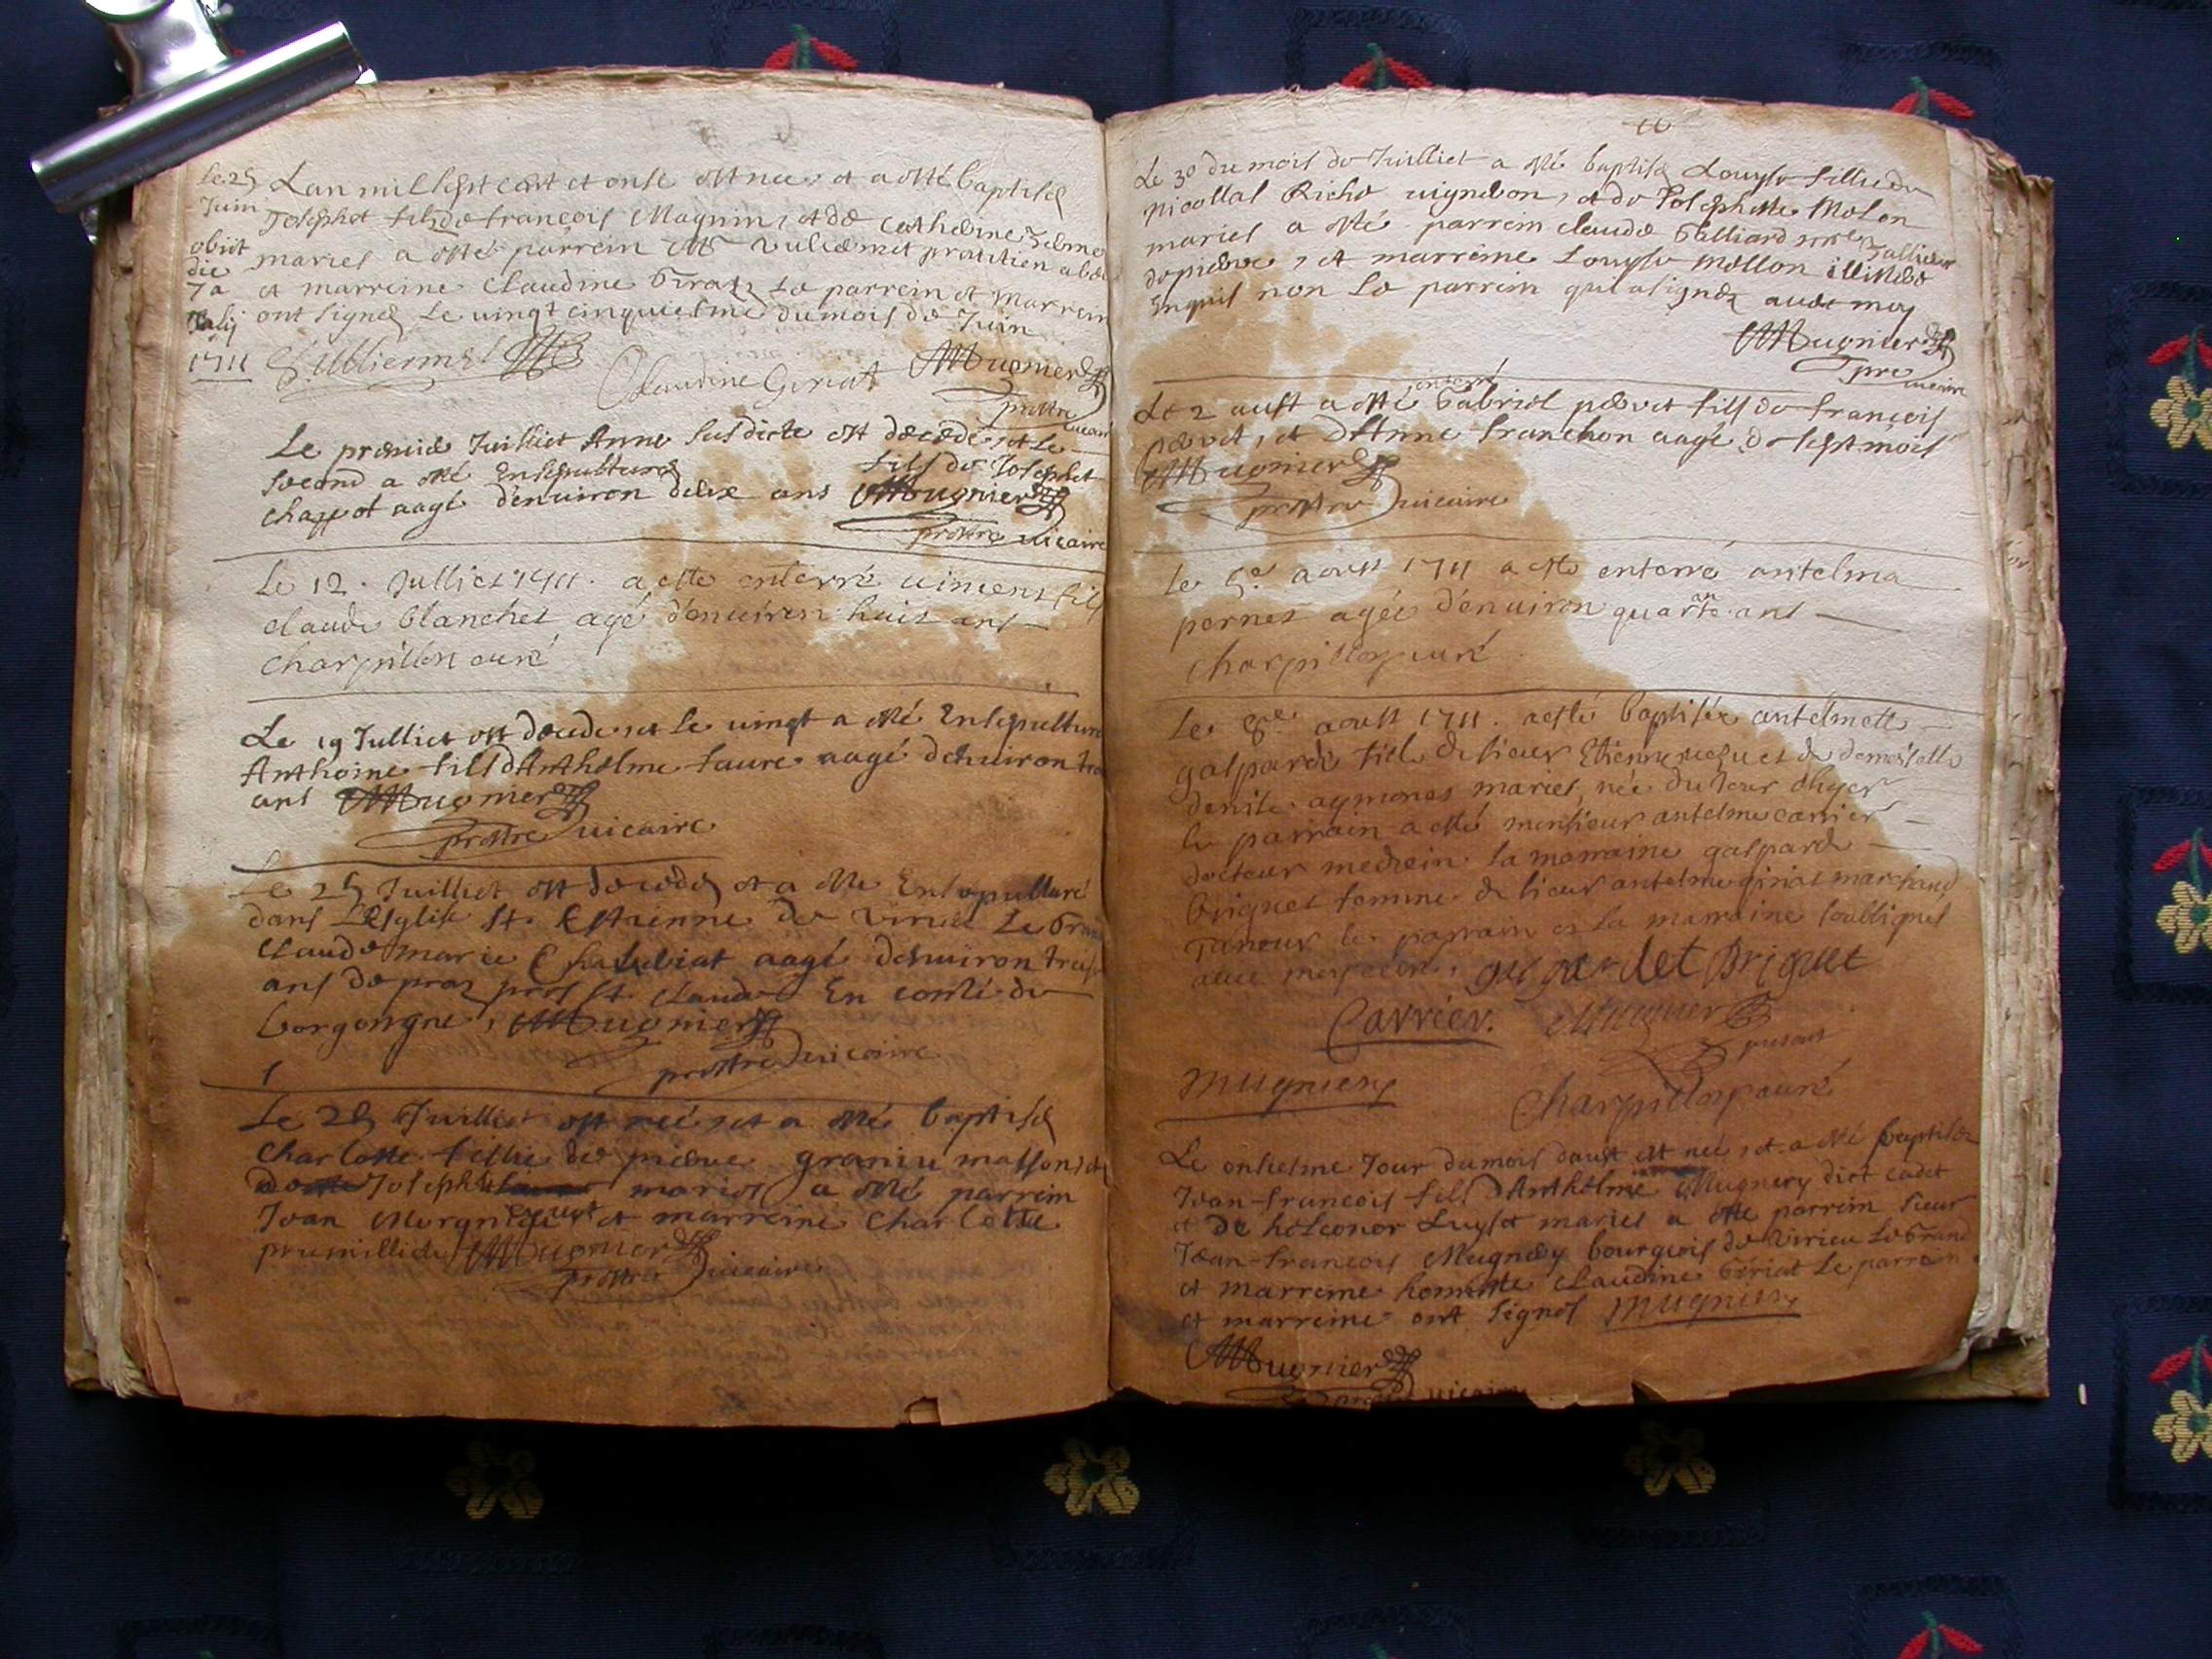 Le 25 Lan mil sept cent et onse est nee, et a esté baptisé
Juin Josephet fils de francois Magnin, et de Catherine
obiit maries a esté parrein Mr Vulliermet pratitien
die et marreine Claudine Girat, Le parrein et marrein
7a ont signez Le vingt cinquiesme du mois de Juin
Julij
1711 Vulliermet
Claudine Geriat Mugnier
prestre vicaire
Le premie Juilliet Anne susdicte est decede, et Le
second a esté Ensepulturé fils de Josephet
chappot aagé denuiron deux ans Mugnier
prestre vicaire
Le 12. Julliet 1711. a esté enterré vincent fils
claude blanchet agé denuiron huit ans
charpillon curé
Le 19 Julliet est decede, et Le uingt a esté Ensepulture
Anthoine fils dAnthelme faure aagé denuiron
ans Mugnier
prestre vicaire
Le 25 Juilliet est decede et a este Ensepulturé
dans LEsglise St. Estienne de Virieu Le Grand
Claude marie aagé denuiron
ans de praz pres St. Claude En comté de
borgongne, Mugnier
prestre vicaire
Le 28 Juilliet est neé, et a esté baptisé
Charlotte fillie de pierre graniu masson, et
de Josephte maries a esté parrein
Jean et marreine Charlotte
prumillieu Mugnier
prestre vicaire
16
Le 30 du mois de Juilliet a esté baptisé Louyse fillie de
Nicollas Riche uigneron, et de Josephte Molon
maries a esté parrein claude Galliard
de pierre, et marreine Louyse Mollon illiteré
Enquis non Le parrein qui a signez avec moy
Mugnier
pre vicaire
Le 2 aust a esté enterré Gabriel peevet fils de francois
peevet, et dAnne franchon aagé de sept mois
Mugnier
prestre vicaire
Le 5e aoust 1711 a esté enterré antelma
pernet agée denuiron quarante ans
charpillon curé
Le 8e aoust 1711. a esté baptisée antelmette
gasparde fille de sieur Etienne et de demoiselle
denise aymones maries, née du Jour dhyer
le parrain a esté monsieur antelme carrier
docteur medecin la marraine gasparde
briguet femme de sieur antelme giriat marchand
Taneur le parrain et la marraine soubsignés
avec moy gasparde briguet
Carrier. Mugnier
present
mugniery Charpillon curé
Le onsiesme Jour du mois daust est neé, et a esté baptisez
Jean-francois fils dAnthelme Mugniery dict cadet
et de heleonor Luyset maries a esté parrein Sieur
Jean-francois Mugniery bourgeois de Virieu Le Grand
et marreine honneste Claudine Geriat Le parrein
et marreine ont signes mugniery
Mugnier
prestre vicaire